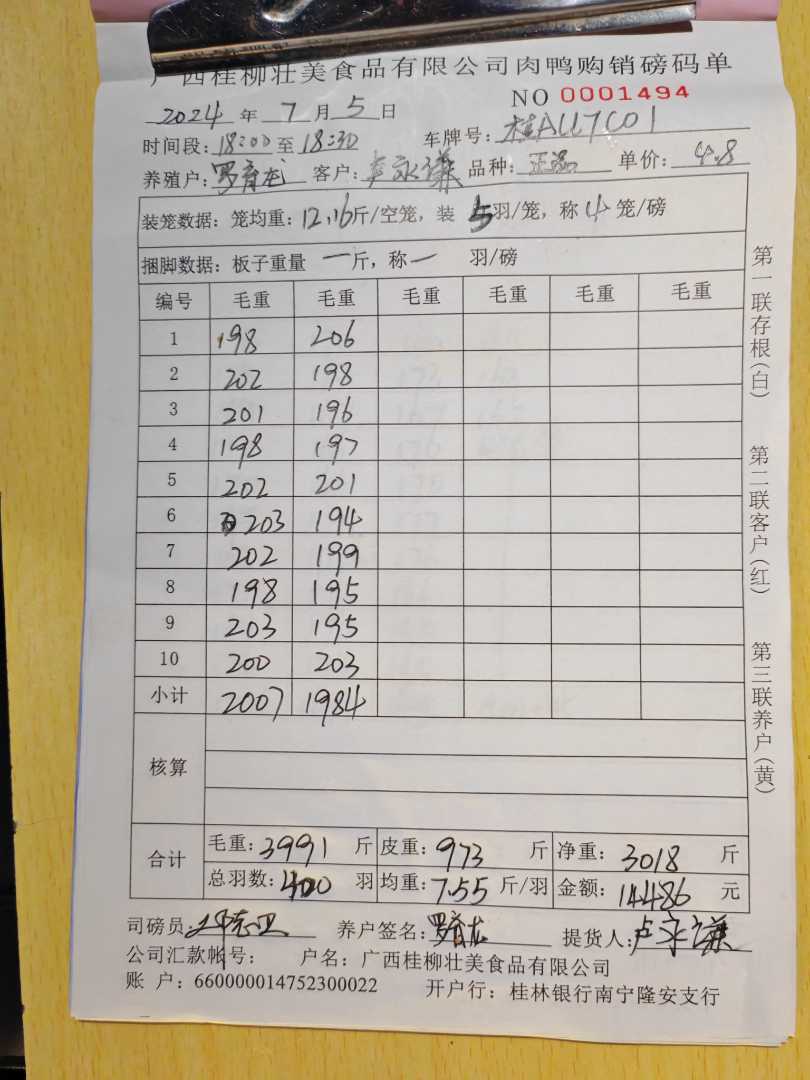 广西桂柳壮美食品有限公司肉鸭购销磅码单
NO 0001494
2024 年 7 月 5 日
时间段: 18:00 至 18:30 车牌号: 桂AU7C01
养殖户: 罗育龙 客户: 卢永谦 品种: 正品 单价: 4.8
装笼数据: 笼均重: 12.16 斤/空笼, 装 5 羽/笼, 称 4 笼/磅
捆脚数据: 板子重量 一 斤, 称 一 羽/磅
编号 毛重 毛重 毛重 毛重 毛重 毛重
1 198 206
2 202 198
3 201 196
4 198 197
5 202 201
6 203 194
7 202 199
8 198 195
9 203 195
10 200 203
小计 2007 1984
核算
合计 毛重: 3991 斤 皮重: 973 斤 净重: 3018 斤
总羽数: 400 羽 均重: 7.55 斤/羽 金额: 14486 元
司磅员: 养户签名: 罗育龙 提货人: 卢永谦
公司汇款帐号: 户名: 广西桂柳壮美食品有限公司
账 户: 660000014752300022 开户行: 桂林银行南宁隆安支行
第一联存根(白)
第二联客户(红)
第三联养户(黄)